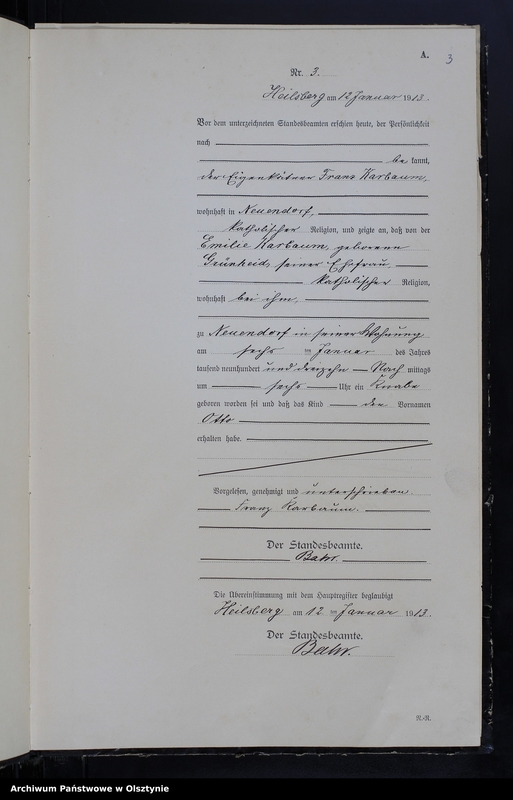 A.
3
Nr. 3.
Heilsberg am 12 Januar 1913.
Vor dem unterzeichneten Standesbeamten erschien heute, der Persönlichkeit
nach
be kannt,
der Eigenkätner Franz Karbaum,
wohnhaft in Neuendorf,
katholischer Religion, und zeigte an, daß von der
Emilie Karbaum, geborenen
Grünheid, seiner Ehefrau,
katholischer Religion,
wohnhaft bei ihm,
zu Neuendorf in seiner Wohnung
am sechs ten Januar des Jahres
tausend neunhundert und dreizehn Nach mittags
um sechs Uhr ein Knabe
geboren worden sei und daß das Kind den Vornamen
Otto
erhalten habe.
Vorgelesen, genehmigt und unterschrieben
Franz Karbaum.
Der Standesbeamte.
Die Übereinstimmung mit dem Hauptregister beglaubigt
Heilsberg am 12 ten Januar 1913.
Der Standesbeamte.
R.-R.
Archiwum Państwowe w Olsztynie